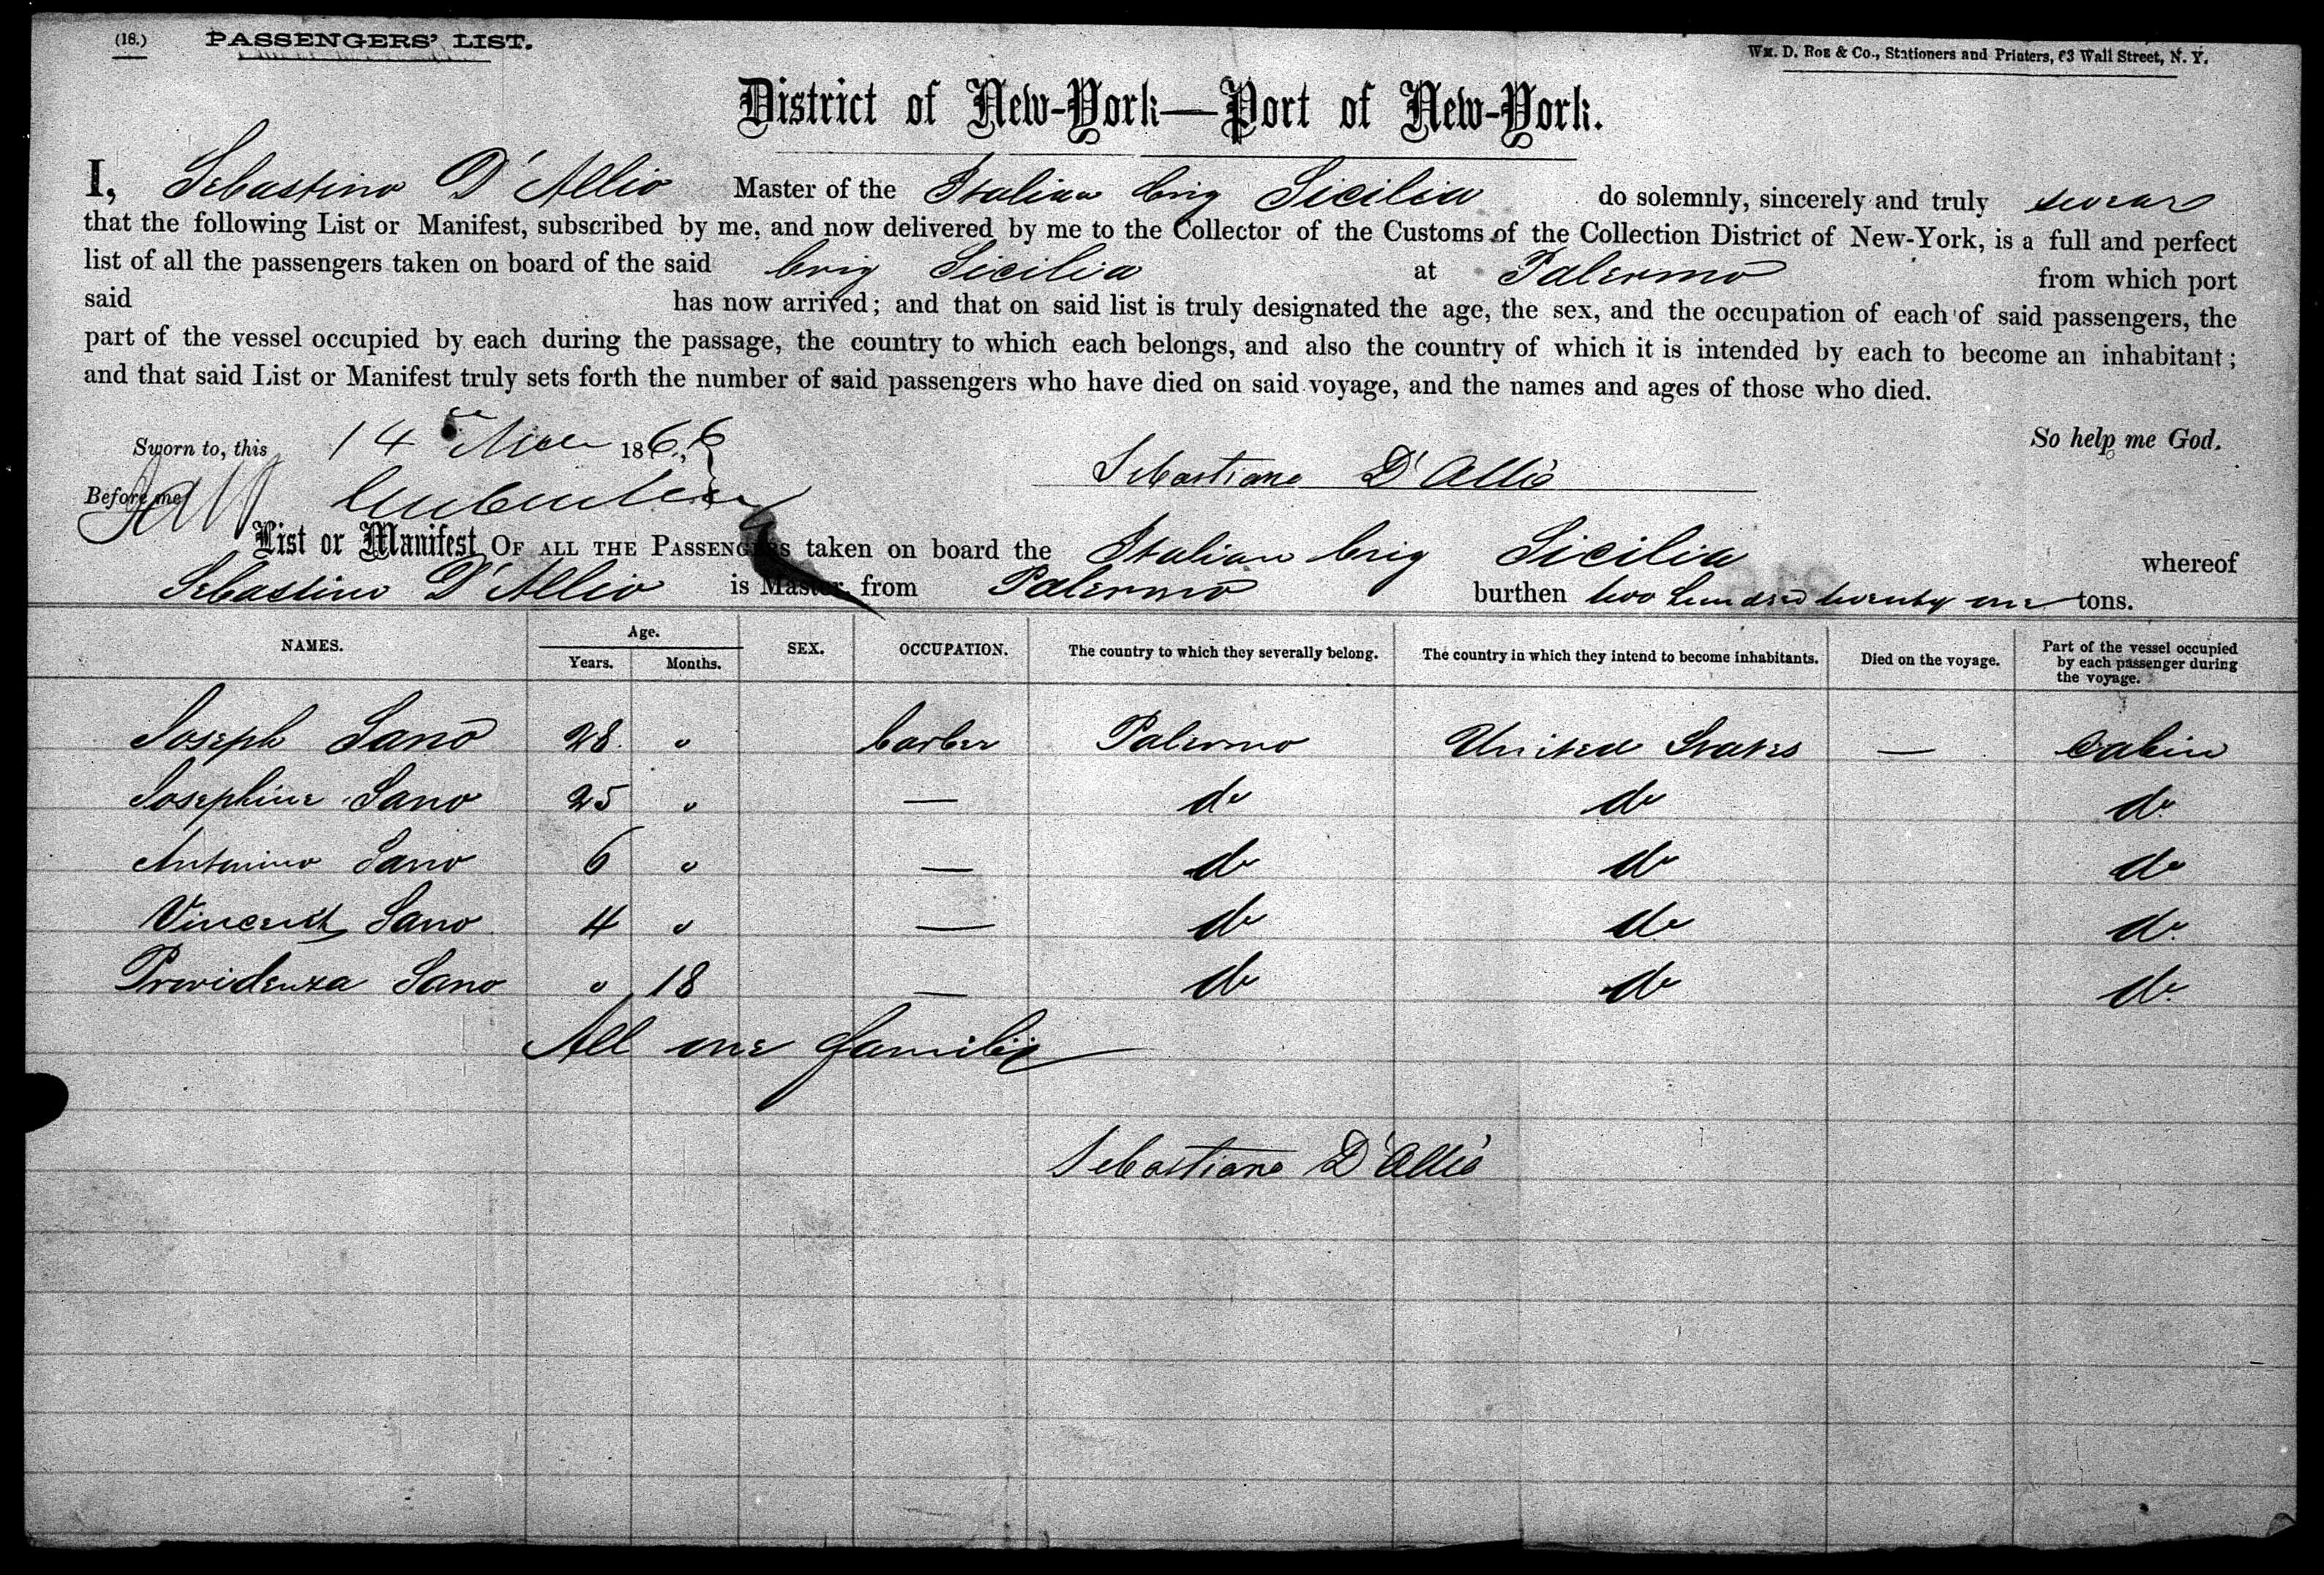 (18.) PASSENGERS' LIST. Wm. D. Roe & Co., Stationers and Printers, 63 Wall Street, N. Y.
District of New-York—Port of New-York.
I, Sebastino D'Allio Master of the Italian brig Sicilia do solemnly, sincerely and truly swear
that the following List or Manifest, subscribed by me, and now delivered by me to the Collector of the Customs of the Collection District of New-York, is a full and perfect
list of all the passengers taken on board of the said brig Sicilia at Palermo from which port
said has now arrived; and that on said list is truly designated the age, the sex, and the occupation of each of said passengers, the
part of the vessel occupied by each during the passage, the country to which each belongs, and also the country of which it is intended by each to become an inhabitant;
and that said List or Manifest truly sets forth the number of said passengers who have died on said voyage, and the names and ages of those who died.
So help me God.
Sworn to, this 14 1866
Sebastiano D'Allio
Before me
List or Manifest OF ALL THE PASSENGERS taken on board the Italian brig Sicilia whereof
Sebastino D'Allio is Master, from Palermo burthen two hundred twenty one tons.
NAMES. Age. Years. Months. SEX. OCCUPATION. The country to which they severally belong. The country in which they intend to become inhabitants. Died on the voyage. Part of the vessel occupied by each passenger during the voyage.
Joseph Sano 28 " barber Palermo United States — Cabin
Josephine Sano 25 " — do do do
Antonino Sano 6 " — do do do
Vincent Sano 4 " — do do do
Providenza Sano " 18 — do do do
All one family
Sebastiano D'Allio